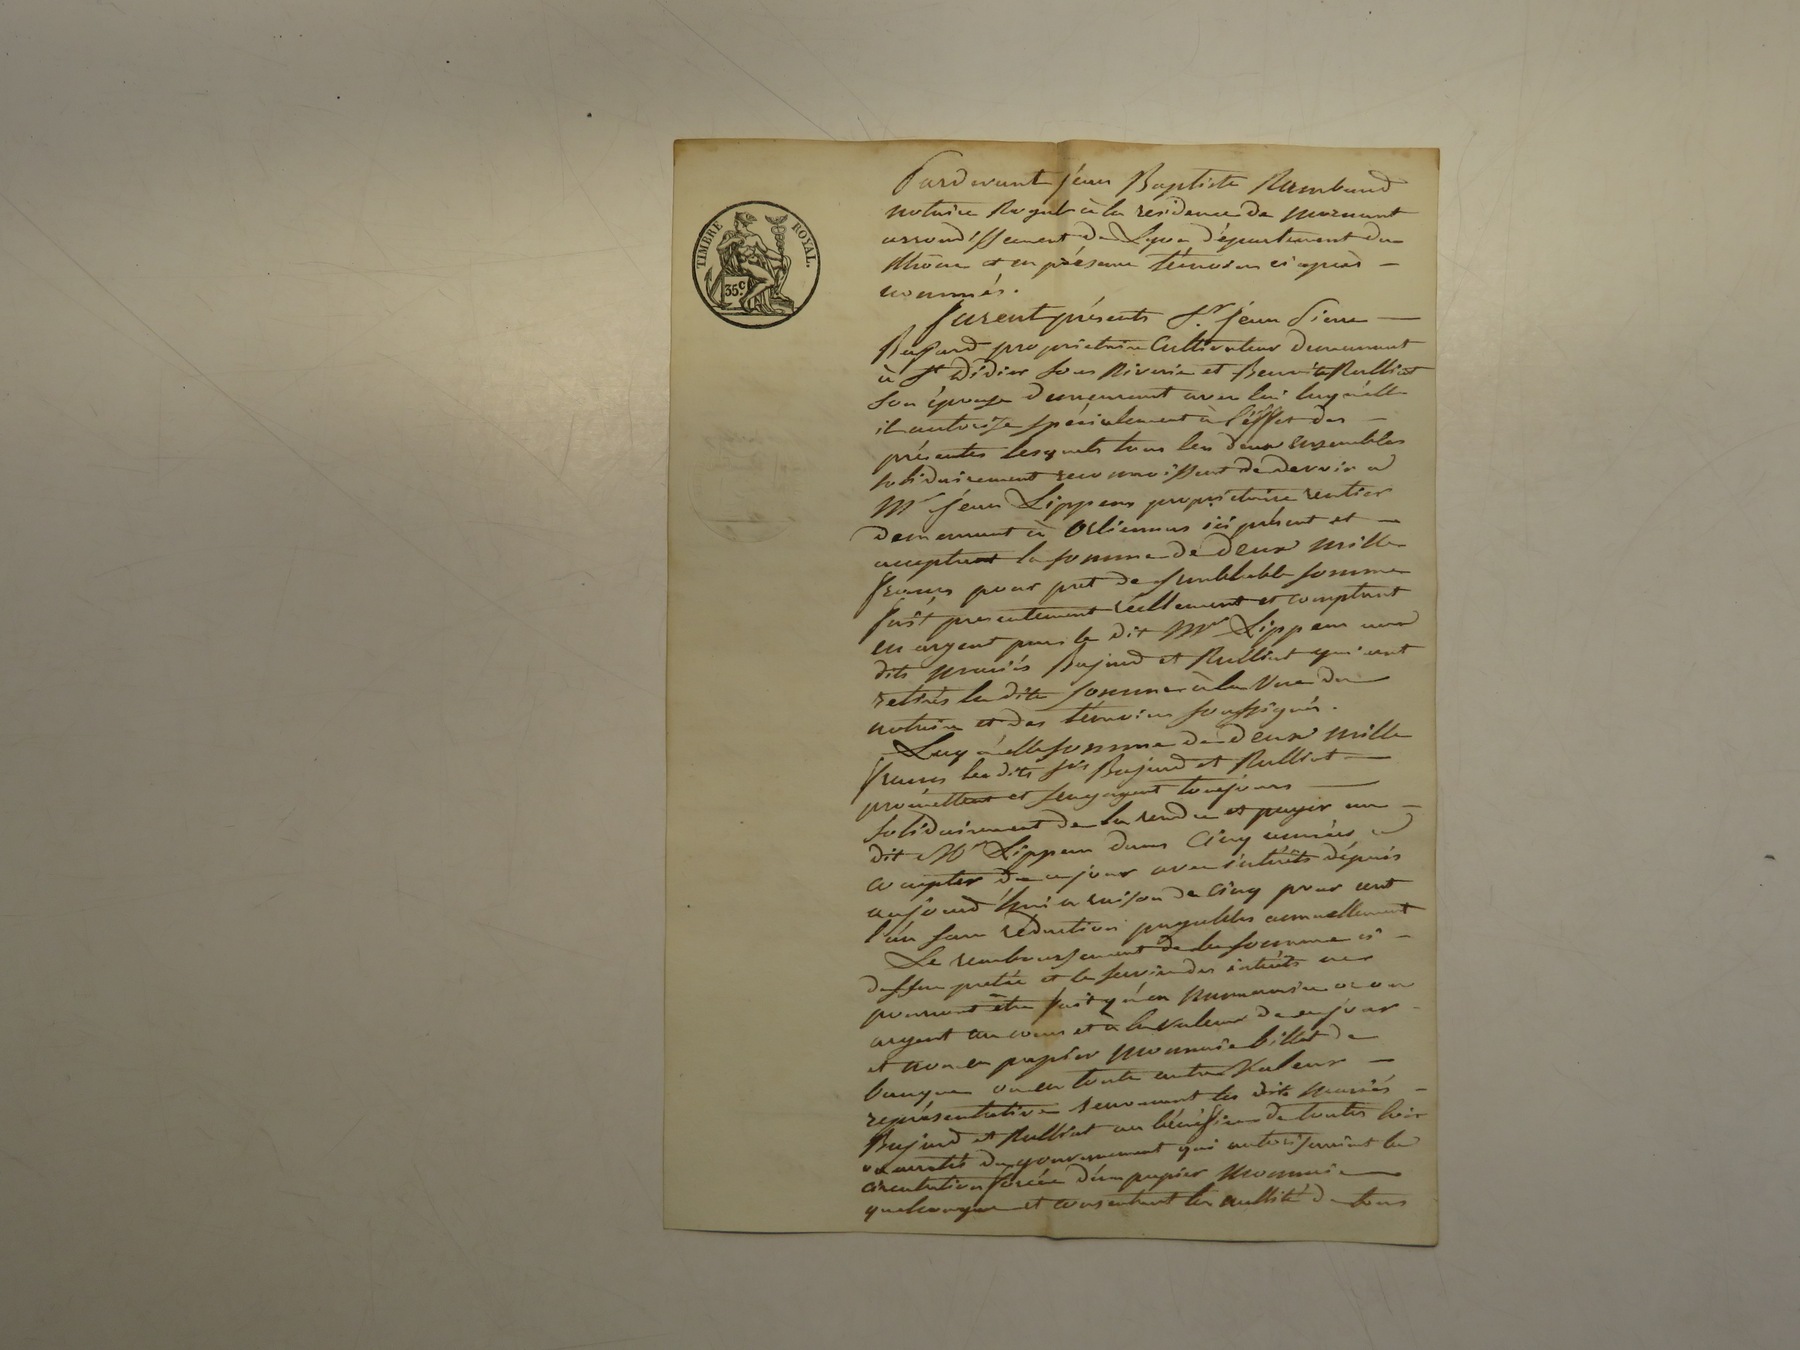 TIMBRE ROYAL.
35c.
Pardevant jean Baptiste Rambaud
notaire Royal à la residence de Mornant
arrondissement de Lyon département du
Rhône et en présence témoins ci après
nommés.
furent présents Sr. jean Pierre
Bajard propriétaire Cultivateur demeurant
à St Didier sous Riverie et Benoite Rulliat
son épouse demeurant avec lui laquélle
il autorise spécialement à l'éffet des
présentes lesquels tous les deux ensembles
solidairement reconnoissent de devoir a
Mr jean Lippens propriétaire rentier
demeurant à Orliennas ici présent et
acceptant la somme de deux mille
francs pour pret de semblable somme
fait presentement réellement et comptant
en argent par le dit Mr Lippens aux
dits mariés Bajard et Rulliat qui ont
retirés la dite somme à la Vue du
notaire et des témoins soussignés.
Laquélle somme de deux mille
francs les dits Bajard et Rulliat
prométtent et s'engagent toujours
solidairement de la rendre et payer au
dit Mr Lippens dans Cinq années a
compter de ce jour avec intérêts dépuis
aujourd'hui a raison de cinq pour cent
l'an sans réduction payables annuellement
Le remboursement de la somme ci
dessus pretée et le service des intérêts ne
pourront être fait qu'en Numeraire ou en
argent au cours et à la valeur de ce jour
et non en papier monnaie billet de
banque ou en toute autre Valeur
représentative renoncant les dits mariés
Bajard et Rulliat au bénéfice de toutes lois
ou arretés du gouvernement qui autoriseroient la
circulation forcée d'un papier Monnaie
quelconque et consentent la nullité de tous